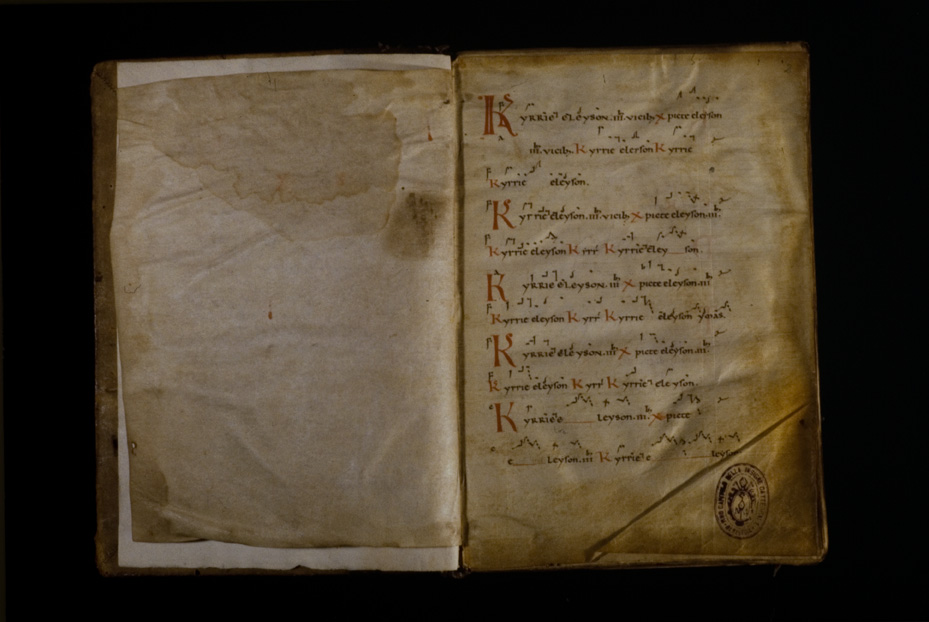 Kyrrie eleyson. iii. vicib; xpicte eleyson
iii. vicib; Kyrrie eleison Kyrrie
Kyrrie eleyson.
Kyrrie eleyson. iii. vicib; xpicte eleyson. iii.
Kyrrie eleyson Kyrr Kyrrie eley son.
Kyrrie eleyson. iii xpicte eleyson. iii
Kyrrie eleyson Kyrr Kyrrie eleyson
Kyrrie eleyson. iii xpicte eleyson. iii.
Kyrrie eleyson Kyrr Kyrrie eleyson.
Kyrrie e leyson. iii. xpicte
e leyson. iii Kyrrie e leyson